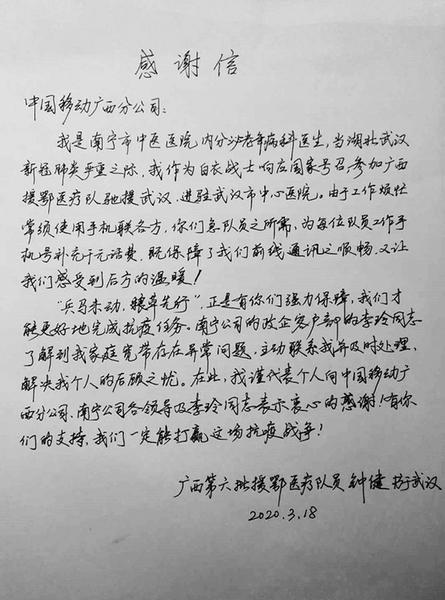 感谢信
中国移动广西分公司：
我是南宁市中医医院内分泌老年病科医生，当湖北武汉
新冠肺炎严重之际，我作为白衣战士响应国家号召，参加广西
援鄂医疗队驰援武汉，进驻武汉市中心医院。由于工作烦忙
常须使用手机联各方，你们急队员之所需，为每位队员工作手
机号补充千元话费，既保障了我们前线通讯之顺畅，又让
我们感受到后方的温暖！
“兵马未动，粮草先行”，正是有你们强力保障，我们才
能更好地完成抗疫任务。南宁公司的政企客户部的李玲同志
了解到我家庭宽带存在异常问题，主动联系我并及时处理，
解决我个人的后顾之忧。在此，我谨代表个人向中国移动广
西分公司、南宁公司各领导及李玲同志表示衷心的感谢！有你
们的支持，我们一定能打赢这场抗疫战争！
广西第六批援鄂医疗队队员 钟健 书于武汉
2020.3.18